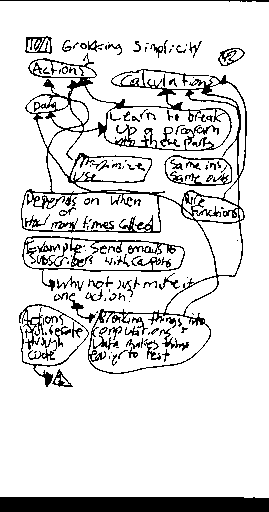 10/1 Grokking Simplicity
Actions
Calculations
Data
Learn to break
up a program
into these parts
Minimize
Use
Same ins
Same outs
Depends on when
or
How many times called
Pure
functions
Example: Send emails to
subscribers with coupons
Why not just make it
one action?
Actions
through
code
Breaking things into
computations &
Data makes things
easier to test